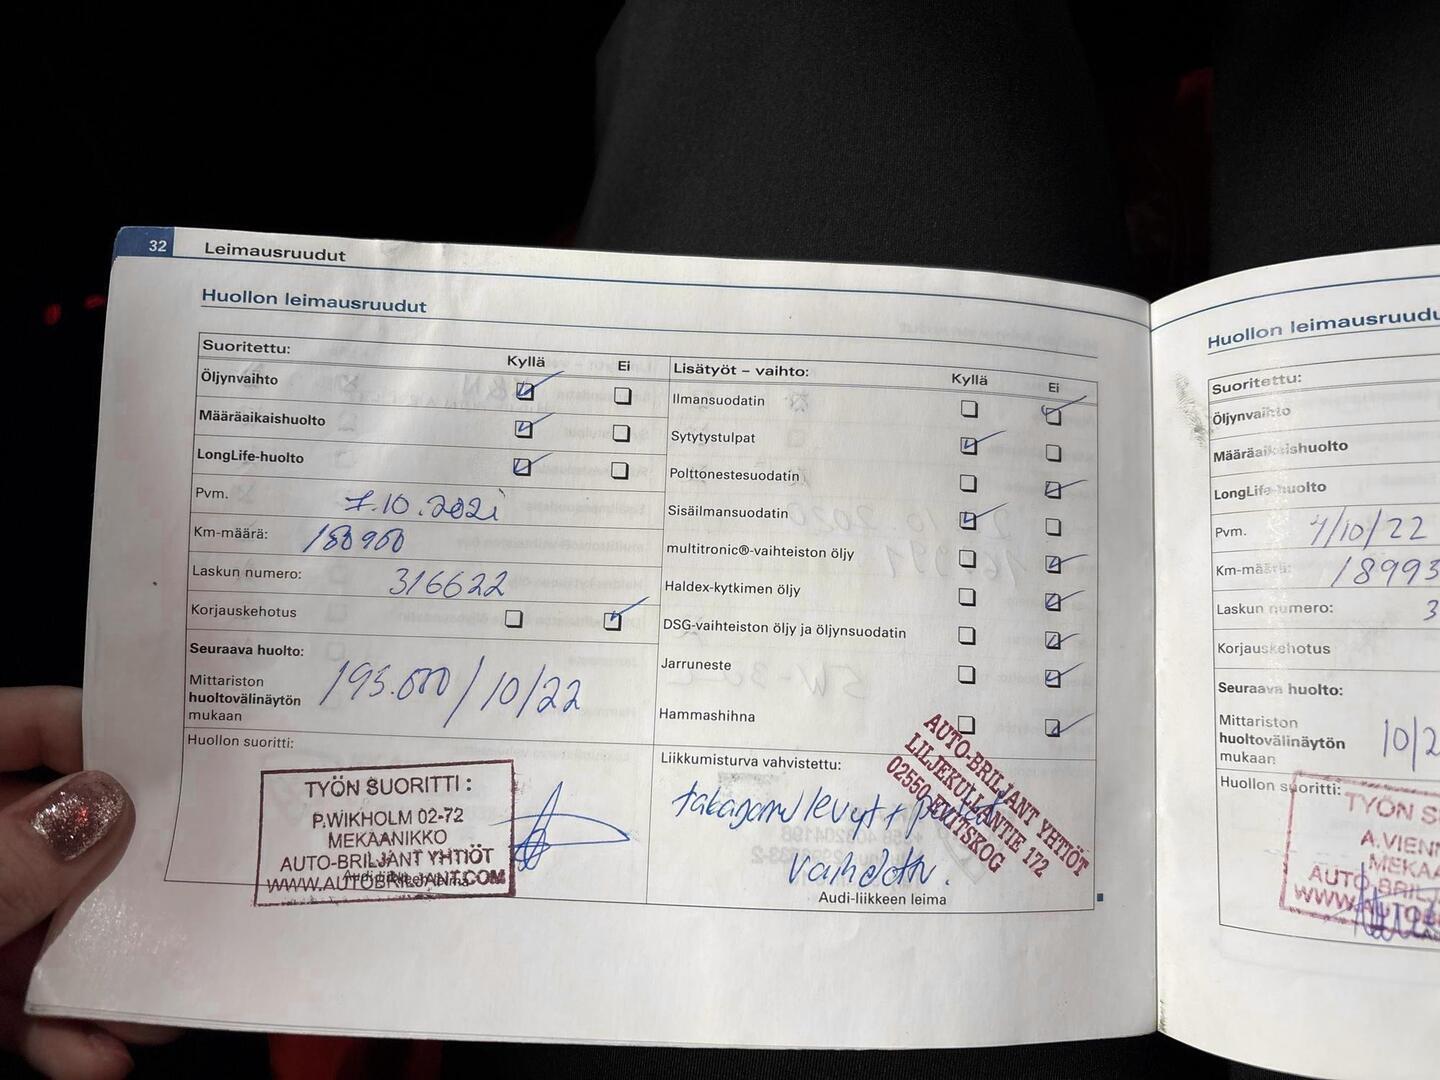 32 Leimausruudut
Huollon leimausruudut
Suoritettu: Kyllä Ei
Öljynvaihto
Määräaikaishuolto
LongLife-huolto
Pvm. 7.10.2021
Km-määrä:
Laskun numero: 316622
Korjauskehotus
Seuraava huolto:
Mittariston
huoltovälinäytön
mukaan
195.000/10/22
Huollon suoritti:
TYÖN SUORITTI :
P.WIKHOLM 02-72
MEKAANIKKO
AUTO-BRILJANT YHTIÖT
WWW.AUTOBRILJANT.COM
Audi-liikkeen leima
Lisätyöt – vaihto: Kyllä Ei
Ilmansuodatin
Sytytystulpat
Polttonestesuodatin
Sisäilmansuodatin
multitronic®-vaihteiston öljy
Haldex-kytkimen öljy
DSG-vaihteiston öljy ja öljynsuodatin
Jarruneste
Hammashihna
Liikkumisturva vahvistettu:
AUTO-BRILJANT YHTIÖT
LILJEKULLANTIE 172
02550 EVITSKOG
takajarrulevyt + palat
vaihdettu.
Audi-liikkeen leima
Huollon leimausruudu
Suoritettu:
Öljynvaihto
Määräaikaishuolto
LongLife-huolto
Pvm. 4/10/22
Km-määrä: 18993
Laskun numero: 3
Korjauskehotus
Seuraava huolto:
Mittariston
huoltovälinäytön
mukaan
10/2
Huollon suoritti:
TYÖN S
A.VIENN
MEKAA
AUTO-BRIL
WWW.AUTOB